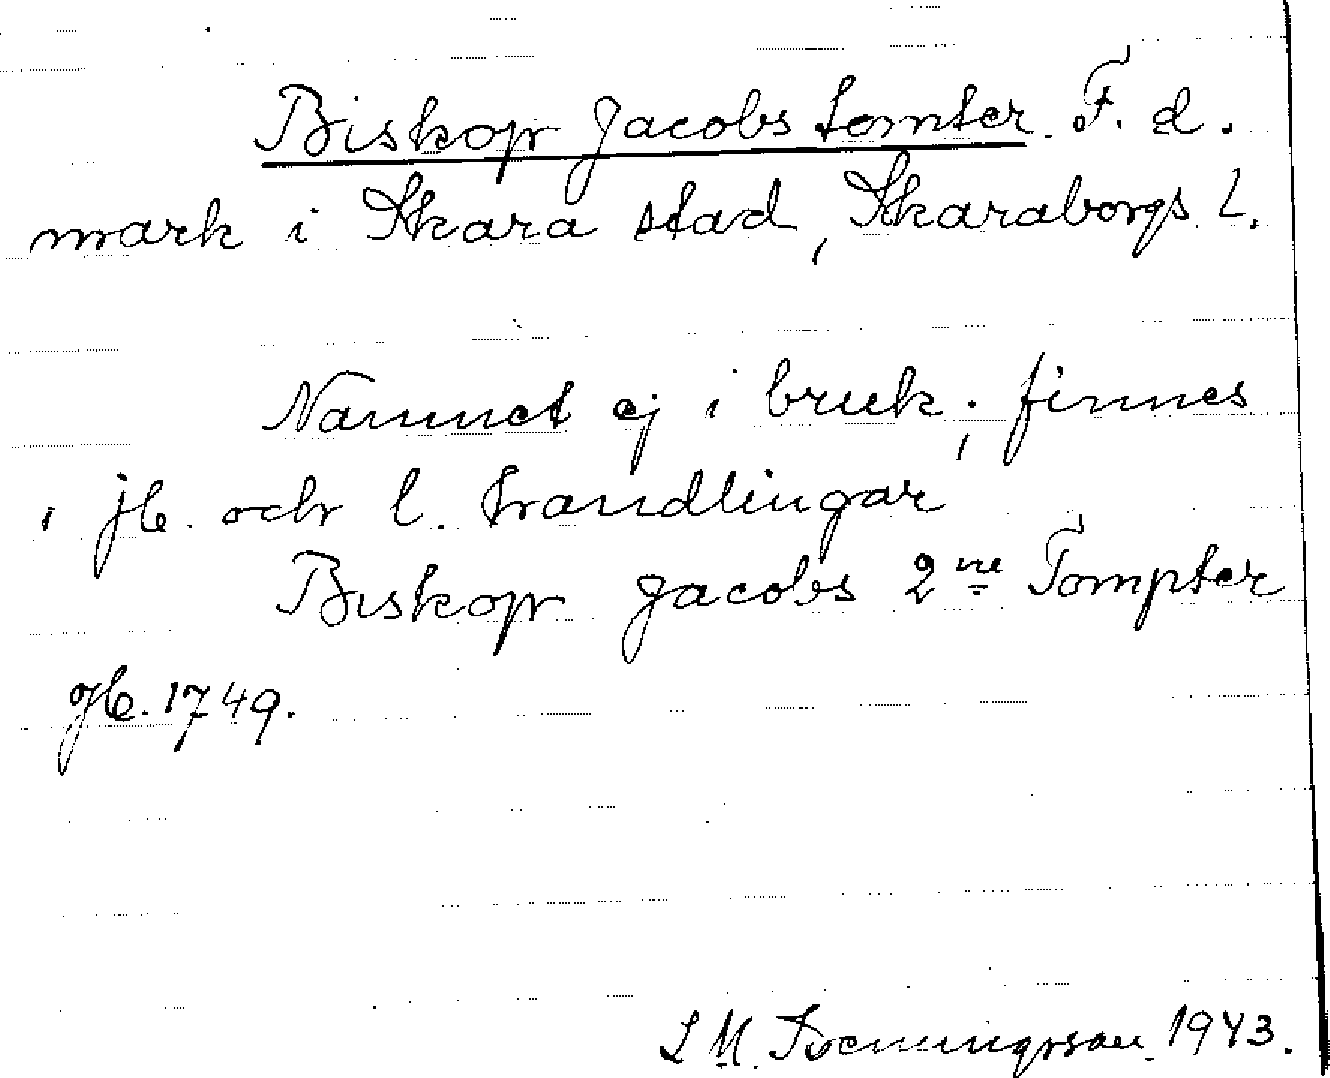 Biskop Jacobs tomter. F. d.
mark i Skara stad, Skaraborgs L.
Namnet ej i bruk; finnes
i jb. och l. handlingar
Biskop Jacobs 2ne Tompter
Jb. 1749.
S M. 1943.